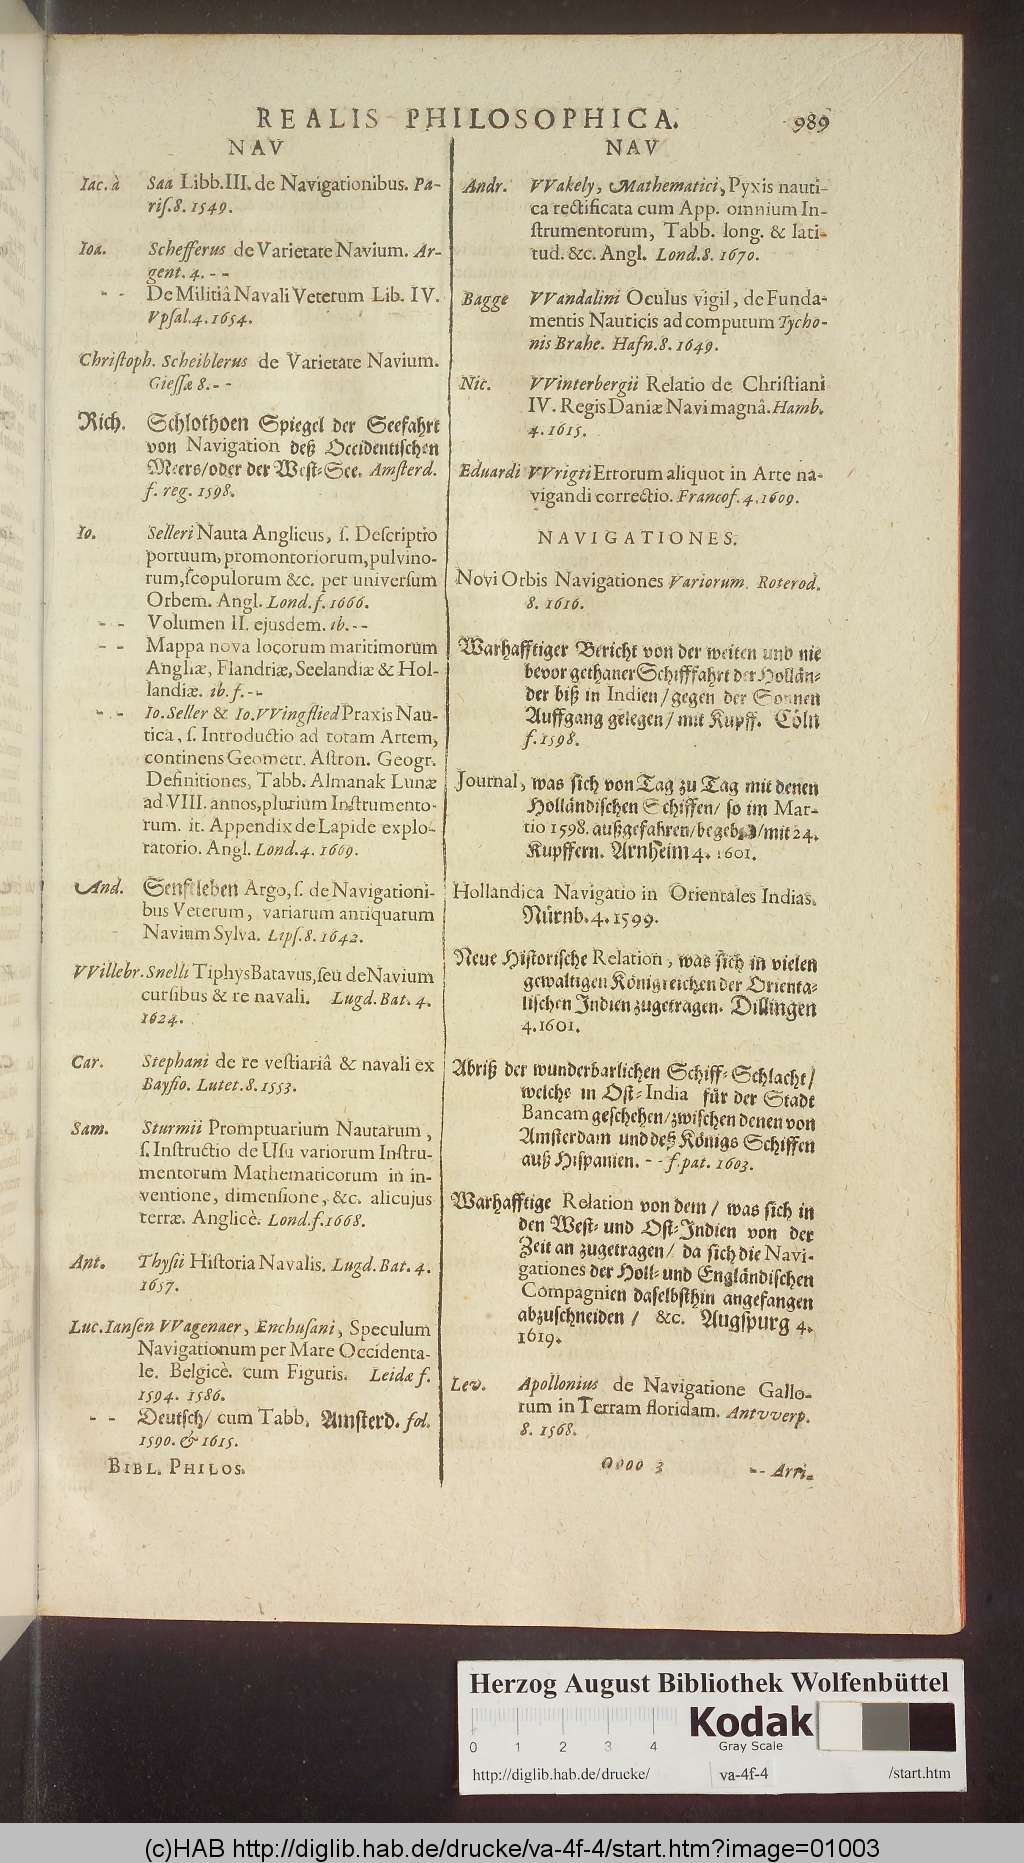 REALIS PHILOSOPHICA. 989
NAV
Iac. à Saa Libb. III. de Navigationibus. Pa-
ris. 8. 1549.
Ioa. Schefferus de Varietate Navium. Ar-
gent. 4. - -
- - De Militiâ Navali Veterum Lib. IV.
Vpsal. 4. 1654.
Christoph. Scheiblerus de Varietate Navium.
Giessæ 8. - -
Rich. Schlothoen Spiegel der Seefahrt
von Navigation deß Occidentischen
Meers/ oder der West-See. Amsterd.
f. reg. 1598.
Io. Selleri Nauta Anglicus, ſ. Deſcriptio
portuum, promontoriorum, pulvino-
rum, ſcopulorum &c. per univerſum
Orbem. Angl. Lond. f. 1666.
- - Volumen II. ejusdem. ib. - -
- - Mappa nova locorum maritimorum
Angliæ, Flandriæ, Seelandiæ & Hol-
landiæ. ib. f. - -
- - Io. Seller & Io. VVingflied Praxis Nau-
tica, ſ. Introductio ad totam Artem,
continens Geometr. Aſtron. Geogr.
Definitiones, Tabb. Almanak Lunæ
ad VIII. annos, plurium Inſtrumento-
rum. it. Appendix de Lapide explo-
ratorio. Angl. Lond. 4. 1669.
And. Senftleben Argo, ſ. de Navigationi-
bus Veterum, variarum antiquarum
Navium Sylva. Lipſ. 8. 1642.
VVillebr. Snelli Tiphys Batavus, ſeu de Navium
curſibus & re navali. Lugd. Bat. 4.
1624.
Car. Stephani de re veſtiariâ & navali ex
Bayſio. Lutet. 8. 1553.
Sam. Sturmii Promptuarium Nautarum,
ſ. Inſtructio de Uſu variorum Inſtru-
mentorum Mathematicorum in in-
ventione, dimenſione, &c. alicujus
terræ. Anglicè. Lond. f. 1668.
Ant. Thyſii Hiſtoria Navalis. Lugd. Bat. 4.
1657.
Luc. Ianſen VVagenaer, Enchuſani, Speculum
Navigationum per Mare Occidenta-
le. Belgicè. cum Figuris. Leidæ f.
1594. 1586.
- - Deutſch/ cum Tabb. Amſterd. fol.
1590. & 1615.
BIBL. PHILOS.
NAV
Andr. VVakely, Mathematici, Pyxis nauti-
ca rectificata cum App. omnium In-
ſtrumentorum, Tabb. long. & lati-
tud. &c. Angl. Lond. 8. 1670.
Bagge VVandalini Oculus vigil, de Funda-
mentis Nauticis ad computum Tycho-
nis Brahe. Hafn. 8. 1649.
Nic. VVinterbergii Relatio de Chriſtiani
IV. Regis Daniæ Navi magnâ. Hamb.
4. 1615.
Eduardi VVrigti Errorum aliquot in Arte na-
vigandi correctio. Francof. 4. 1609.
NAVIGATIONES.
Novi Orbis Navigationes Variorum. Roterod.
8. 1616.
Warhafftiger Bericht von der weiten und nie
bevor gethaner Schifffahrt der Hollän-
der biß in Indien/ gegen der Sonnen
Auffgang gelegen/ mit Kupff. Cöln
f. 1598.
Journal, was ſich von Tag zu Tag mit denen
Holländiſchen Schiffen/ ſo im Mar-
tio 1598. außgefahren/ begeben/ mit 24.
Kupffern. Arnheim 4. 1601.
Hollandica Navigatio in Orientales Indias.
Nürnb. 4. 1599.
Neue Hiſtoriſche Relation, was ſich in vielen
gewaltigen Königreichen der Orienta-
liſchen Indien zugetragen. Dillingen
4. 1601.
Abriß der wunderbarlichen Schiff-Schlacht/
welche in Oſt-India für der Stadt
Bancam geſchehen/ zwiſchen denen von
Amſterdam und deß Königs Schiffen
auß Hiſpanien. - - f. pat. 1603.
Warhafftige Relation von dem/ was ſich in
den Weſt- und Oſt-Indien von der
Zeit an zugetragen/ da ſich die Navi-
gationes der Holl- und Engländiſchen
Compagnien daſelbſthin angefangen
abzuſchneiden/ &c. Augſpurg 4.
1619.
Lev. Apollonius de Navigatione Gallo-
rum in Terram floridam. Antvverp.
8. 1568.
Oooo 3 - - Arti-
Herzog August Bibliothek Wolfenbüttel
Kodak
Gray Scale
0 1 2 3 4
http://diglib.hab.de/drucke/ va-4f-4 /start.htm
(c)HAB http://diglib.hab.de/drucke/va-4f-4/start.htm?image=01003